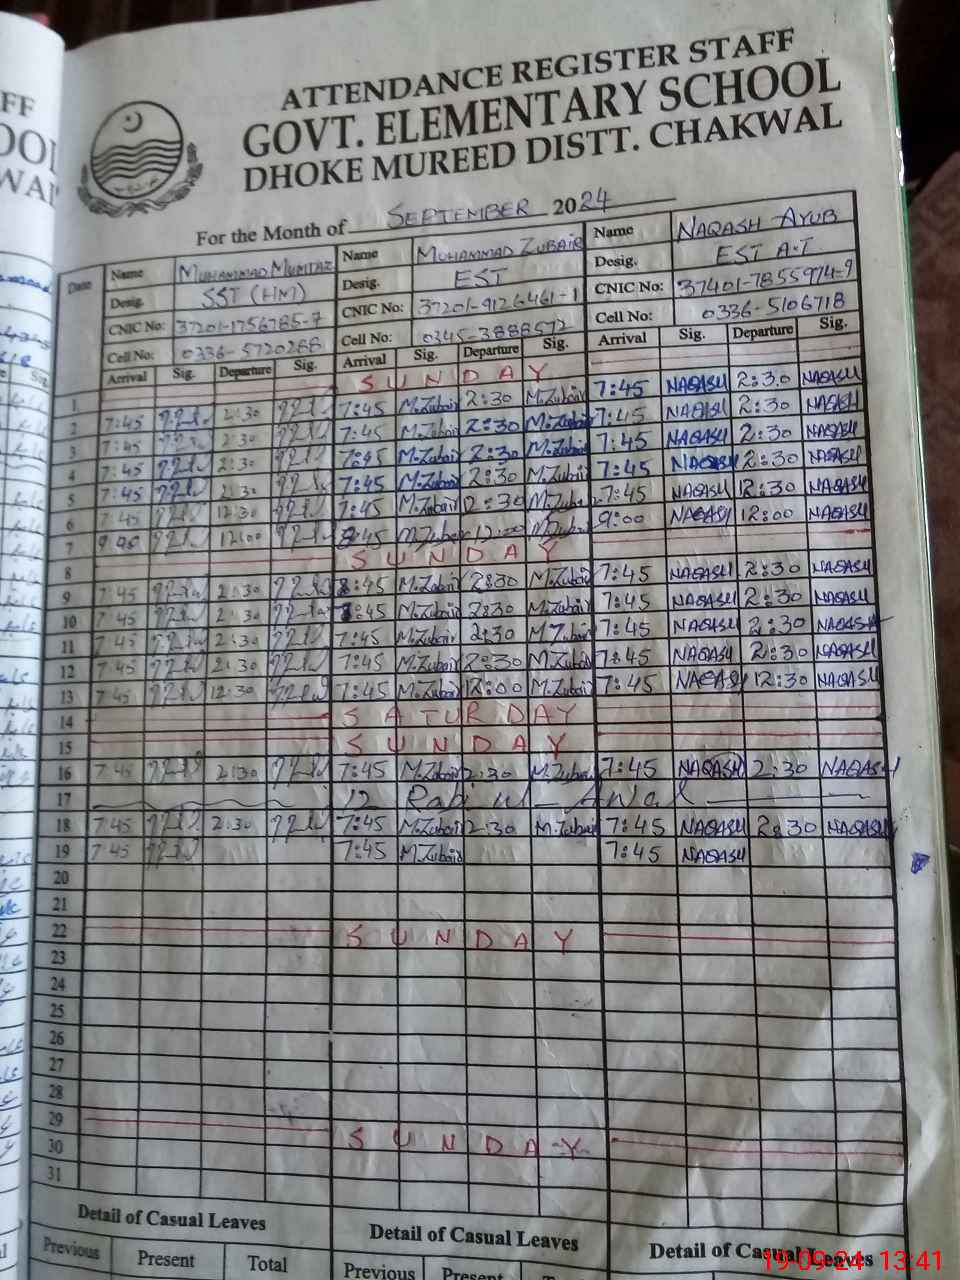 ATTENDANCE REGISTER STAFF
GOVT. ELEMENTARY SCHOOL
DHOKE MUREED DISTT. CHAKWAL
For the Month of SEPTEMBER 2024
Date Name MUHAMMAD MUMTAZ Name MUHAMMAD ZUBAIR Name NAQASH AYUB
Desig. SST (HM) Desig. EST Desig. EST A.T
CNIC No: 37201-1756785-7 CNIC No: 37201-9126461-1 CNIC No: 37401-7855974-9
Cell No: 0336-5720288 Cell No: 0345-3888572 Cell No: 0336-5106718
Arrival Sig. Departure Sig. Arrival Sig. Departure Sig. Arrival Sig. Departure Sig.
1 SUNDAY
2 7:45 2:30 7:45 M.Zubair 2:30 M.Zubair 7:45 NAQASH 2:30 NAQASH
3 7:45 2:30 7:45 M.Zubair 2:30 M.Zubair 7:45 NAQASH 2:30 NAQASH
4 7:45 2:30 7:45 M.Zubair 2:30 M.Zubair 7:45 NAQASH 2:30 NAQASH
5 7:45 2:30 7:45 M.Zubair 2:30 M.Zubair 7:45 NAQASH 2:30 NAQASH
6 7:45 12:30 7:45 M.Zubair 12:30 M.Zubair 7:45 NAQASH 12:30 NAQASH
7 12:00 M.Zubair 12:00 M.Zubair 9:00 NAQASH 12:00 NAQASH
8 SUNDAY
9 7:45 2:30 M.Zubair 2:30 M.Zubair 7:45 NAQASH 2:30 NAQASH
10 7:45 2:30 M.Zubair 2:30 M.Zubair 7:45 NAQASH 2:30 NAQASH
11 7:45 2:30 7:45 M.Zubair 2:30 M.Zubair 7:45 NAQASH 2:30 NAQASH
12 7:45 2:30 7:45 M.Zubair 2:30 M.Zubair 7:45 NAQASH 2:30 NAQASH
13 7:45 12:30 7:45 M.Zubair 12:00 M.Zubair 7:45 NAQASH 12:30 NAQASH
14 SATURDAY
15 SUNDAY
16 7:45 2:30 7:45 M.Zubair 2:30 M.Zubair 7:45 NAQASH 2:30 NAQASH
17 12 Rabi ul-Awal
18 7:45 2:30 7:45 M.Zubair 2:30 M.Zubair 7:45 NAQASH 2:30 NAQASH
19 7:45 7:45 M.Zubair 7:45 NAQASH
20
21
22 SUNDAY
23
24
25
26
27
28
29 SUNDAY
30
31
Detail of Casual Leaves Detail of Casual Leaves Detail of Casual Leaves
Previous Present Total Previous Present
19-09-24 13:41